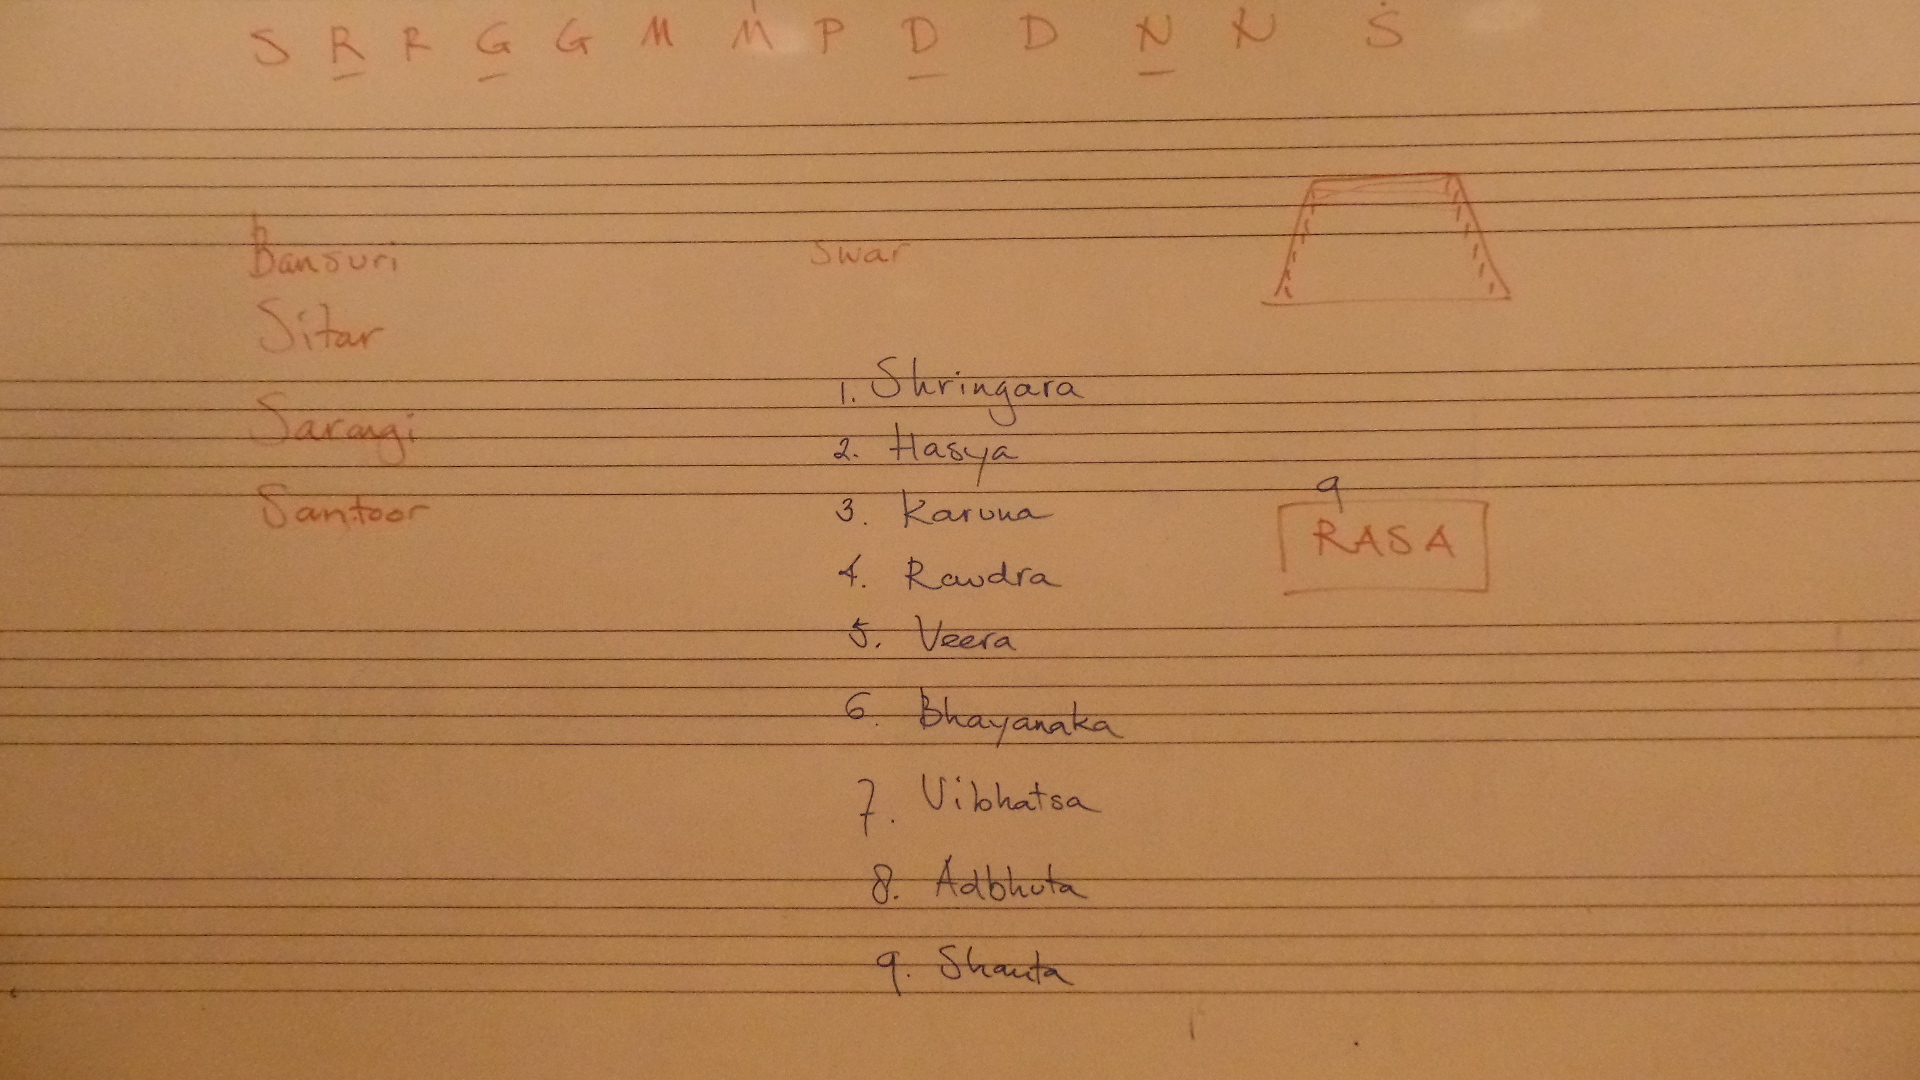 S R̲ R G̲ G M Ṁ P D̲ D N̲ N Ṡ
Bansuri
Swar
Sitar
Sarangi
Santoor
1. Shringara
2. Hasya
3. Karuna
4. Raudra
5. Veera
6. Bhayanaka
7. Vibhatsa
8. Adbhuta
9. Shanta
9
RASA